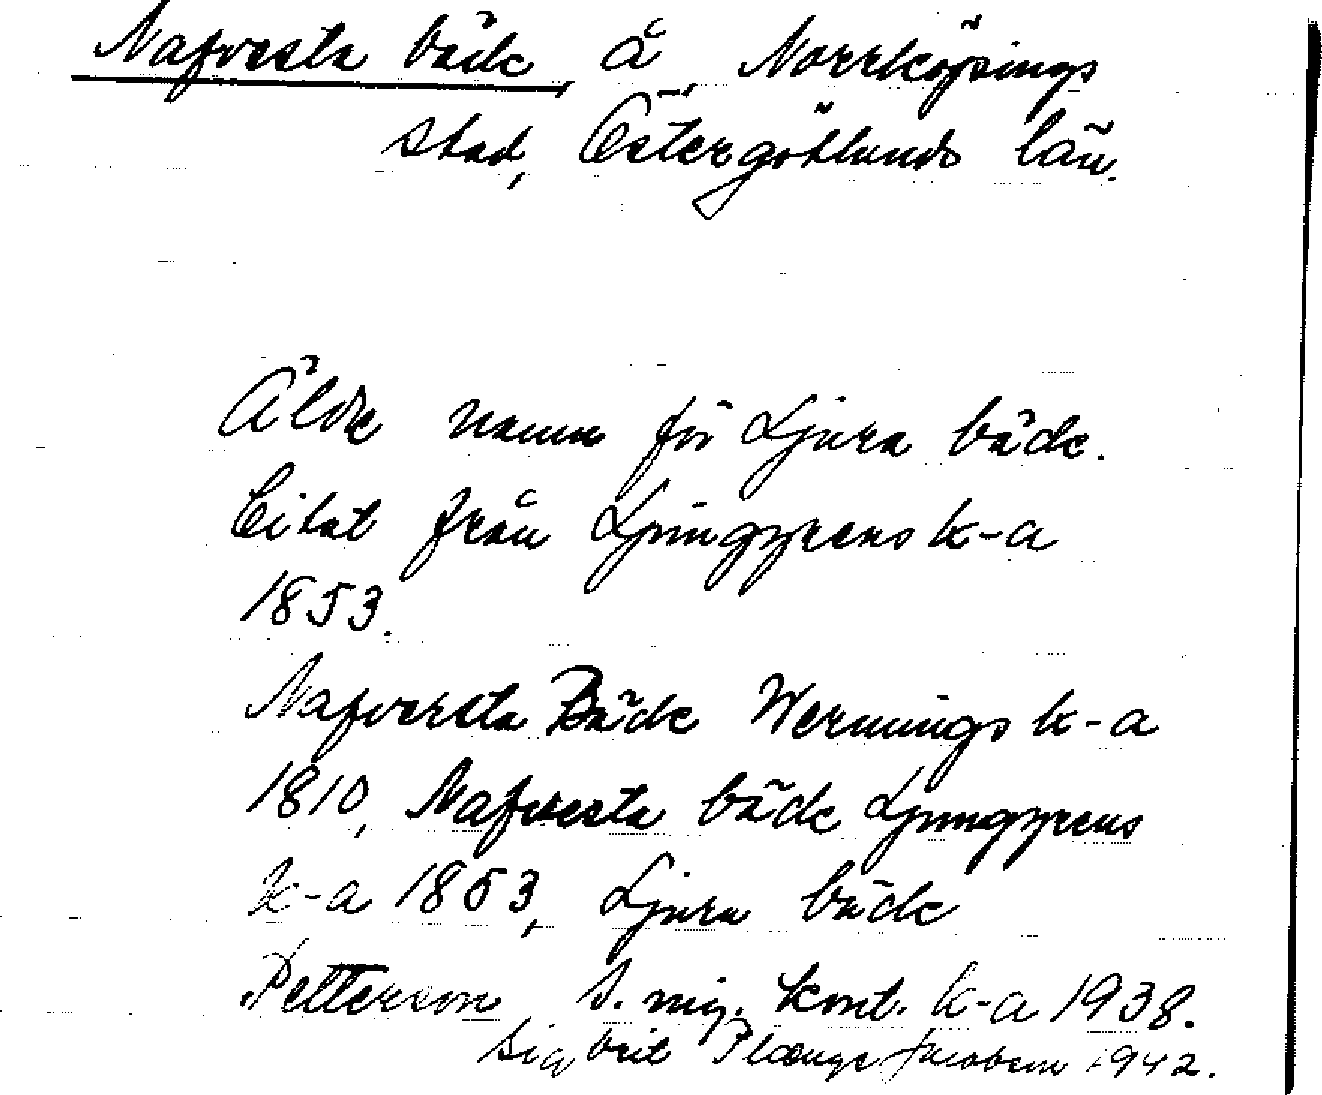 Nafvesta bäck, å, Norrköpings
stad, Östergötlands län.
Äldre namn för Ljura bäck.
Citat från Ljunggrens k-a
1853.
Nafversta Bäck Wernings k-a
1810, Nafvesta bäck Ljunggrens
k-a 1853, Ljura bäck
Petterson, s. mig. kont. k-a 1938.
Sigbrit Plænge Jacobson 1942.